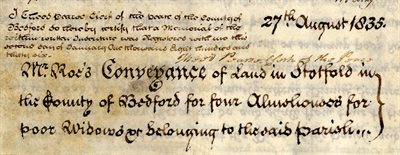 27th August 1835.
I Theed Pearse Clerk of the peace of the County of
Bedford do hereby certify that a Memorial of the
within written Indenture was Registered with me this
second day of January One thousand Eight hundred and
thirty six.
Theed Pearse Clerk of the Peace
Mr Roe's Conveyance of Land in Stotfold in
the County of Bedford for four Almshouses for
poor Widows &c belonging to the said Parish...